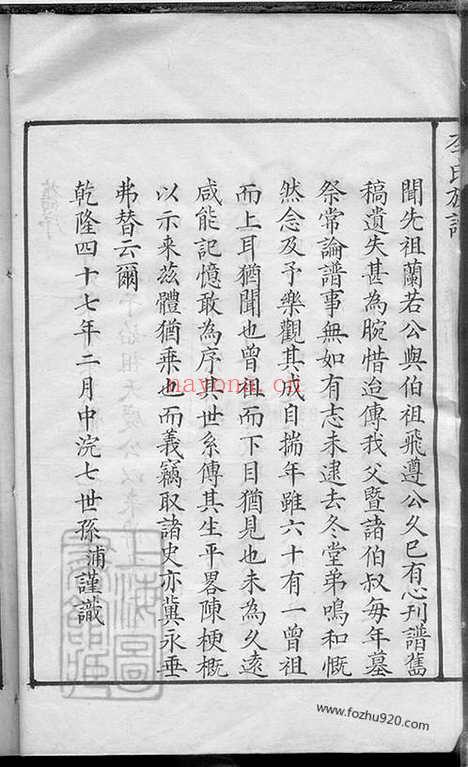 李氏族譜
聞先祖蘭若公與伯祖飛遵公久已有心刊譜舊
稿遺失甚為腕惜迨傳我父暨諸伯叔每年墓
祭常論譜事無如有志未逮去冬堂弟鳴和慨
然念及予樂觀其成自揣年雖六十有一曾祖
而上耳猶聞也曾祖而下目猶見也未為久遠
咸能記憶敢為序其世系傳其生平畧陳梗概
以示来茲體猶乗也而義竊取諸史亦冀永垂
弗替云爾
乾隆四十七年二月中浣七世孫浦謹識
nayona.cn
www.fozhu920.com